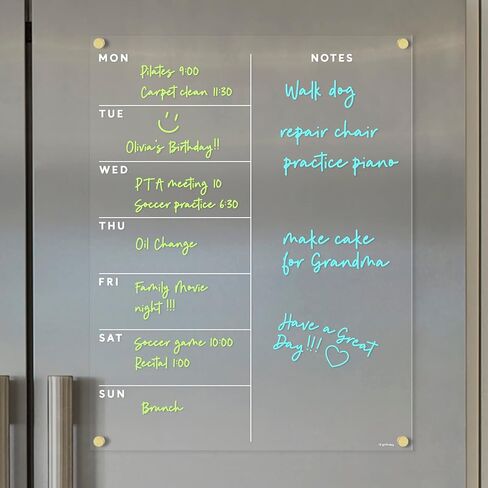 MON
Pilates 9:00
Carpet clean 11:30
TUE
Olivia's Birthday!!
WED
PTA meeting 10
Soccer practice 6:30
THU
Oil Change
FRI
Family Movie
night !!!
SAT
Soccer game 10:00
Recital 1:00
SUN
Brunch
NOTES
Walk dog
repair chair
practice piano
make cake
for Grandma
Have a Great
Day!!!